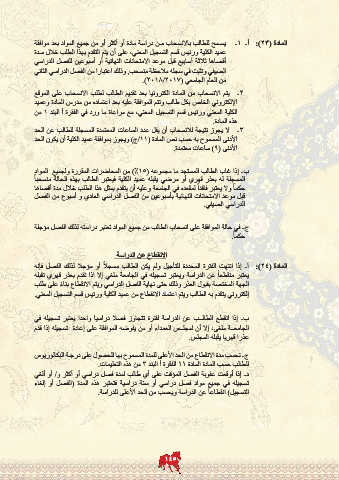 المادة (٢٣): أ. ١. يسمح للطالب بالانسحاب من دراسة مادة أو أكثر أو من جميع المواد بعد موافقة
عميد الكلية ورئيس قسم التسجيل المعني، على أن يتم التقدم بهذا الطلب خلال مدة
أقصاها ثلاثة أسابيع قبل موعد الامتحانات النهائية أو أسبوعين للفصل الدراسي
الصيفي وتثبت في سجله ملاحظة منسحب، وذلك اعتباراً من الفصل الدراسي الثاني
من العام الجامعي (٢٠١٨/٢٠١٧).
٢. يتم الانسحاب من المادة الكترونياً بعد تقديم الطالب لطلب الانسحاب على الموقع
الإلكتروني الخاص بكل طالب وتتم الموافقة عليه بعد اعتماده من مدرس المادة وعميد
الكلية المعني ورئيس قسم التسجيل المعني، مع مراعاة ما ورد في الفقرة أ البند ١ من
هذه المادة.
٣. لا يجوز نتيجة للانسحاب أن يقل عدد الساعات المعتمدة المسجلة للطالب عن الحد
الأدنى المسموح به حسب نص المادة (١١/ج) ويجوز بموافقة عميد الكلية أن يكون الحد
الأدنى (٩) ساعات معتمدة.
ب. إذا غاب الطالب المستجد ما مجموعه (١٥٪) من المحاضرات المقررة ولجميع المواد
المسجلة له بعذر قهري أو مرضي يقبله عميد الكلية فيعتبر الطالب بهذه الحالة منسحباً
حكماً ولا يعتبر فاقداً لمقعده في الجامعة وعليه أن يتقدم بمثل هذا الطلب خلال مدة أقصاها
قبل موعد الامتحانات النهائية بأسبوعين من الفصل الدراسي العادي و أسبوع من الفصل
الدراسي الصيفي.
ج. في حالة الموافقة على انسحاب الطالب من جميع المواد تعتبر دراسته لذلك الفصل مؤجلة
حكماً.
الانقطاع عن الدراسة
المادة (٢٤): أ. إذا انتهت الفترة المحددة للتأجيل ولم يكن الطالب مسجلاً أو مؤجلاً لذلك الفصل فإنه
يعتبر منقطعاً عن الدراسة ويعتبر تسجيله في الجامعة ملغى إلا اذا تقدم بعذر قهري تقبله
الجهة المختصة بقبول العذر وذلك حتى نهاية الفصل الدراسي ويتم الانقطاع بناء على طلب
إلكتروني يتقدم به الطالب ويتم اعتماد الانقطاع من عميد الكلية ورئيس قسم التسجيل المعني.
ب. إذا انقطع الطالب عن الدراسة لفترة تتجاوز فصلاً دراسياً واحداً يعتبر تسجيله في
الجامعة ملغى، إلا أن لمجلس العمداء أو من يفوضه الموافقة على إعادة تسجيله إذا قدم
عذراً قهرياً يقبله المجلس.
ج. تحسب مدة الانقطاع من الحد الأعلى للمدة المسموح بها للحصول على درجة البكالوريوس
للطالب حسب المادة المادة ١١ الفقرة أ البند ٣ من هذه التعليمات.
د. إذا أوقعت عقوبة الفصل المؤقت على أي طالب لمدة فصل دراسي أو أكثر و/ أو ألغي
تسجيله في جميع مواد فصل دراسي أو سنة دراسية فتعتبر هذه المدة (الفصل أو إلغاء
التسجيل) انقطاعاً عن الدراسة ويحسب من الحد الأعلى للدراسة.